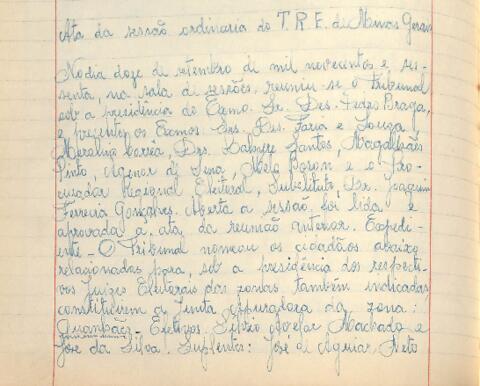 Ata da sessão ordinaria do T. R. E. de Minas Gerais
No dia doze de setembro de mil novecentos e ses-
senta, na sala de sessões, reuniu-se o Tribunal
sob a presidência do Exmo. Sr. Des. Pedro Braga,
e presentes os Exmos. Srs. Des. Faria e Souza,
Merolino Corrêa, Drs. Dabney Santos, Magalhães
Pinto, Agenor de Sena, Melo Boson e o Pro-
curador Regional Eleitoral, Substituto, Dr. Joaquim
Ferreira Gonçalves. Aberta a sessão, foi lida e
aprovada a ata da reunião anterior. Expedi-
ente - O Tribunal nomeou os cidadãos abaixo
relacionados para, sob a presidência dos respecti-
vos Juizes Eleitorais das zonas também indicadas
constituirem a Junta Apuradora da zona:
Guanhães - Efetivos. Silvio José Machado e
José da Silva. Suplentes: José de Aguiar, Neto